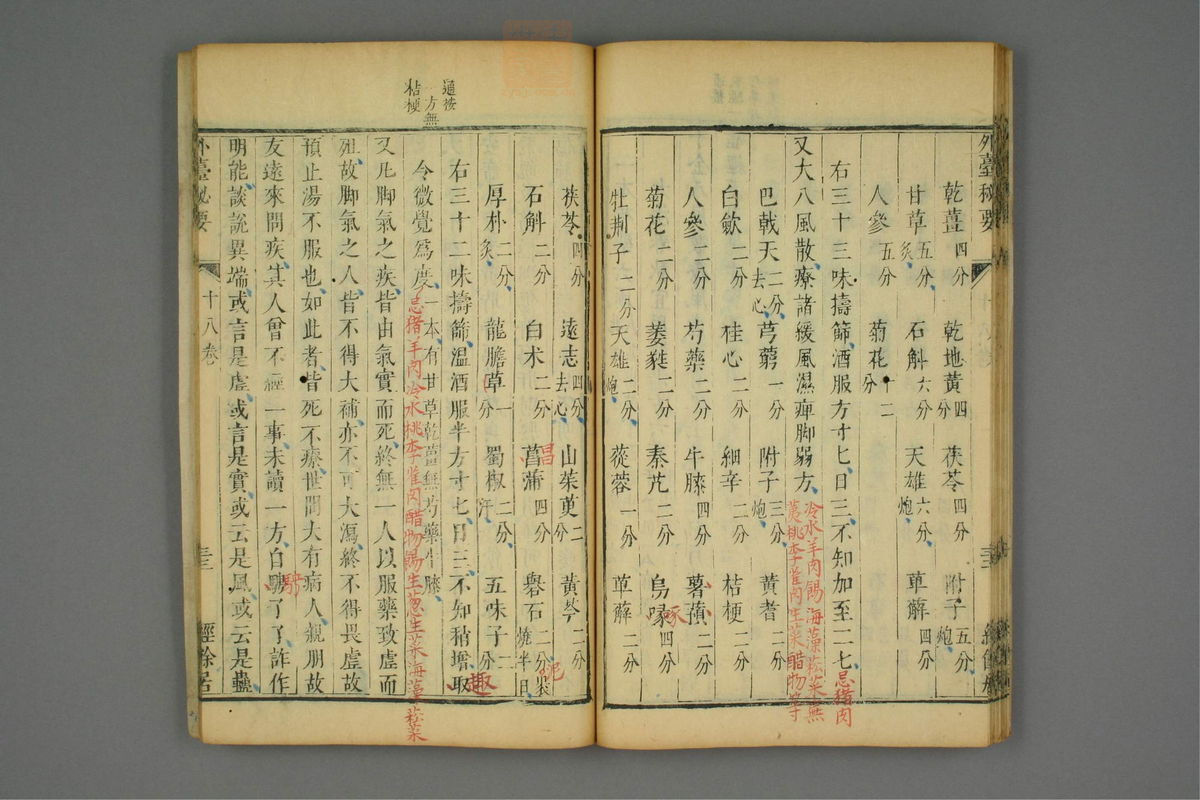 外臺秘要
十八卷
乾薑四分　乾地黃四分　茯苓四分　附子五分炮
甘草五分炙　石斛六分　天雄六分炮　萆薢四分
人參五分　菊花二分
右三十三味擣篩酒服方寸匕日三不知加至二七忌猪肉
冷水羊肉餳海藻菘菜蕪
荑桃李雀肉生菜醋物等
又大八風散療諸緩風濕痺脚弱方
巴戟天二分去心　芎藭一分　附子三分炮　黃耆二分
白歛二分　桂心二分　細辛二分　桔梗二分
人參二分　芍藥二分　牛膝四分　薯蕷二分
菊花二分　萎蕤二分　秦艽二分　烏喙四分
啄
牡荆子二分　天雄二分炮　蓯蓉一分　萆薢二分
茯苓四分　遠志四分去心　山茱萸二分　黃芩二分
石斛二分　白术二分　菖蒲四分　礜石二分燒半日
昌
泥
厚朴二分炙　龍膽草一分　蜀椒二分汗　五味子二分
右三十二味擣篩溫酒服半方寸七日三不知稍增取
趣
令微覺爲度一本有甘草乾薑無芍藥牛膝
忌猪羊肉冷水桃李雀肉醋物餳生葱生菜海藻菘菜
通按
一方無
桔梗
又凡脚氣之疾皆由氣實而死終無一人以服藥致虛而
殂故脚氣之人皆不得大補亦不可大瀉終不得畏虛故
預止湯不服也如此者皆死不療世間大有病人親朋故
友遠來問疾其人曾不經一事未讀一方自騁了了詐作
明能談說異端或言是虛或言是實或云是風或云是蠱
外臺秘要
十八卷
三三
經餘居